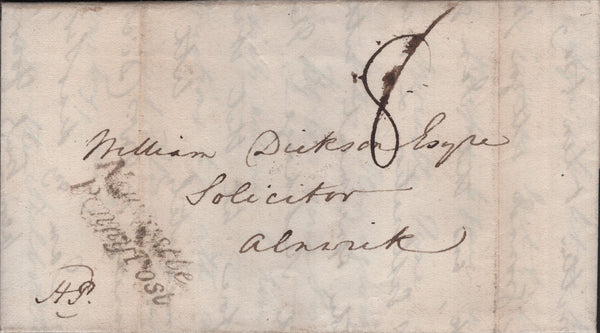 8
William Dickson Esqre
Solicitor
Alnwick
Newcastle
Penny Post